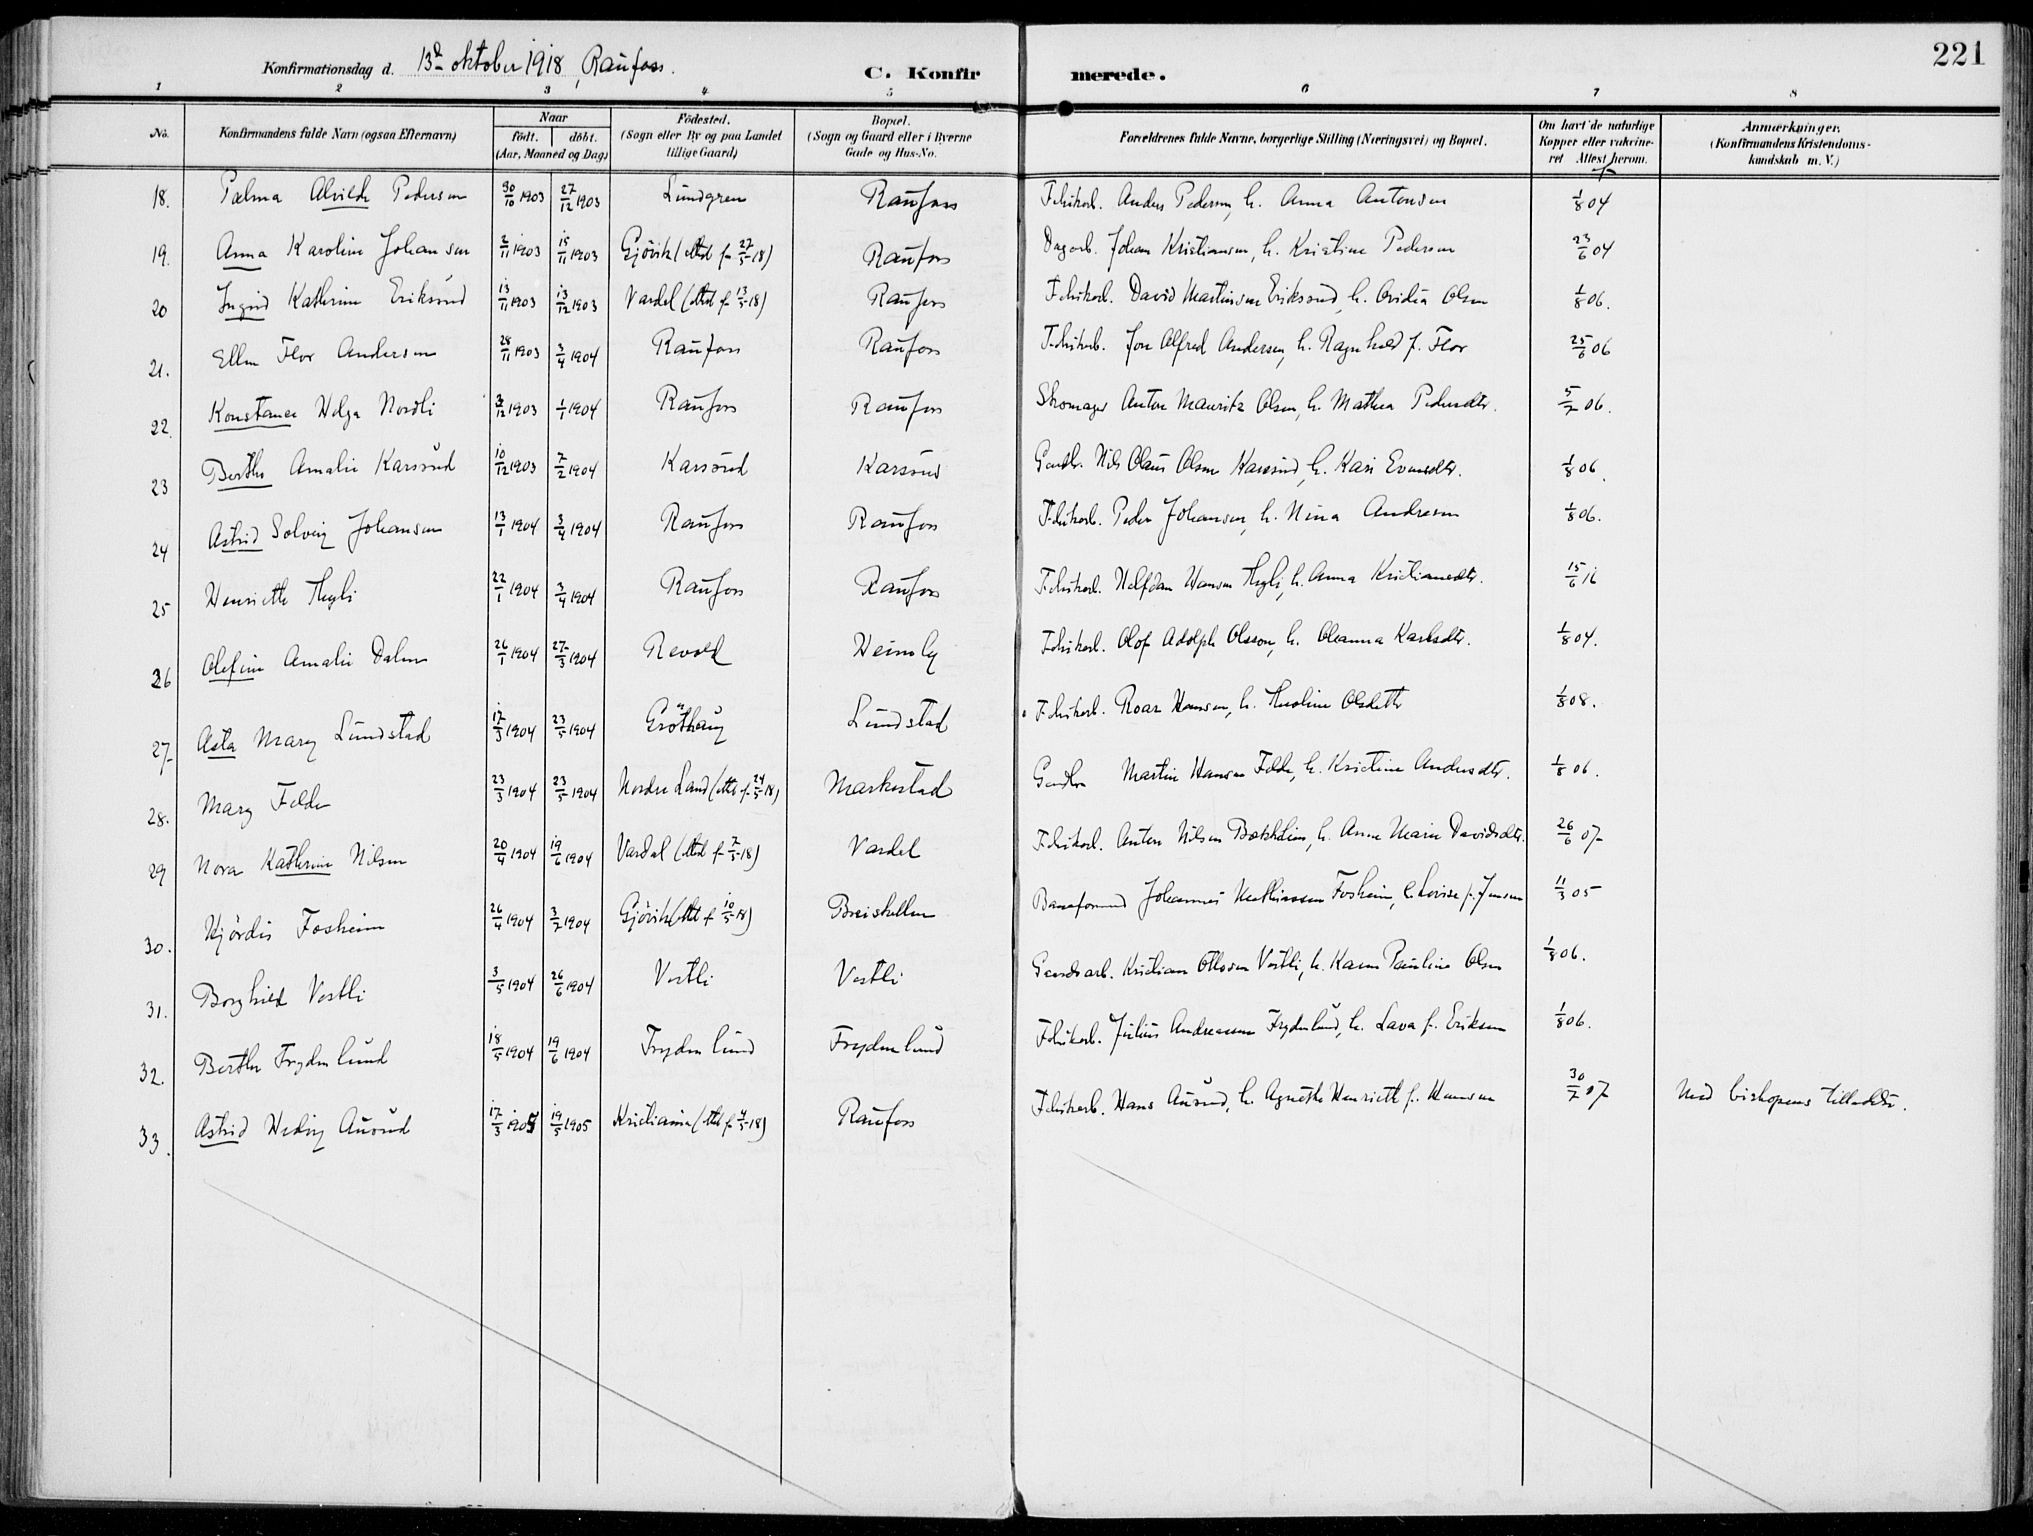 221
Konfirmationsdag d. 13de oktober 1918, Raufoss.
C. Konfirmerede.
1 2 3 4 5 6 7 8
No. Konfirmandens fulde Navn (ogsaa Efternavn) Naar født. døbt. (Aar, Maaned og Dag) Fødested. (Sogn eller By og paa Landet tillige Gaard) Bopæl. (Sogn og Gaard eller i Byerne Gade og Hus-No. Forældrenes fulde Navne, borgerlige Stilling (Næringsvei) og Bopæl. Om havt de naturlige Kopper eller vakcineret Attest herom. Anmærkninger. (Konfirmandens Kristendomskundskab m. V.)
18. Palma Alvilde Pedersen 30/10 1903 27/12 1903 Lundgren Raufoss Fabrikarb. Anders Pedersen, h. Anna Antonsen 1/8 04
19. Anna Karoline Johansen 2/11 1903 15/11 1903 Gjövik (attest fr 27/5-18) Raufoss Dagarb. Johan Kristiansen, h. Kristine Pedersen 23/6 04
20 Ingrid Kathrine Eriksrud 13/11 1903 13/12 1903 Vardal (attest fr 13/5-18) Raufoss Fabrikarb. David Martinsen Eriksrud, h. Ovidia Olsen 1/8 06.
21. Ellen Flor Andersen 28/11 1903 3/4 1904 Raufoss Raufoss Fabrikarb. Jon Alfred Andersen, h. Ragnhild f. Flor 25/6 06
22. Konstance Helga Nordli 3/12 1903 1/1 1904 Raufoss Raufoss Skomager Anton Mauritz Olsen, h. Mathea Pedersdtr. 5/7 06.
23 Berthe Amalie Karsrud 10/12 1903 7/2 1904 Karsrud Karsrud Gaardbr. Nils Olaus Olsen Karsrud, h. Kari Evensdtr. 1/8 06.
24 Astrid Solveig Johansen 13/1 1904 3/4 1904 Raufoss Raufoss Fabrikarb. Peder Johansen, h. Nina Andresen 1/8 06.
25 Henriette Thygli 22/1 1904 3/4 1904 Raufoss Raufoss Fabrikarb. Halfdan Hansen h. Anna Kristiansdtr. 15/6 16
26 Olefine Amalie Dalen 26/1 1904 27/3 1904 Revold Heimly Fabrikarb. Olof Adolph Olsson, h. Oleanna Karlsdtr. 1/8 04.
27. Asta Mary Lundstad 17/3 1904 23/5 1904 Gröthaug Lundstad Fabrikarb. Roar Hansen, h. Olsdatter 1/8 08.
28. Mary Felde 23/3 1904 23/5 1904 Nordre Land (attest fr 24/5-18) Markestad Gaardbr. Martin Hansen Felde, h. Kristine Andersdtr. 1/8 06.
29 Nora Kathrine Nilsen 20/4 1904 19/6 1904 Vardal (attest fr 7/5-18) Vardal Fabrikarb. Anton Nilsen h. Anne Marie Davidsdtr. 26/6 07
30. Hjördis Fosheim 26/4 1904 3/7 1904 Gjövik (attest fr 10/5-18) Breiskallen Baneformand Johannes Mathiassen Fosheim, h. Lovise f. Jensen 11/3 05
31. Borghild Vestli 3/5 1904 26/6 1904 Vestli Vestli Gaardsarb. Kristian Ottosen Vestli, h. Karen Pauline Olsen 1/8 06.
32. Berthe Frydenlund 18/5 1904 19/6 1904 Frydenlund Frydenlund Fabrikarb. Julius Andreassen Frydenlund, h. Lava f. Eriksen 1/8 06.
33. Astrid Hedvig Ausrud 17/3 1905 19/5 1905 Kristiania (attest fr 4/5-18) Raufoss Fabrikarb. Hans Ausrud, h. Agnethe Henriette f. Hansen 30/7 07 Med biskopens tilladelse.